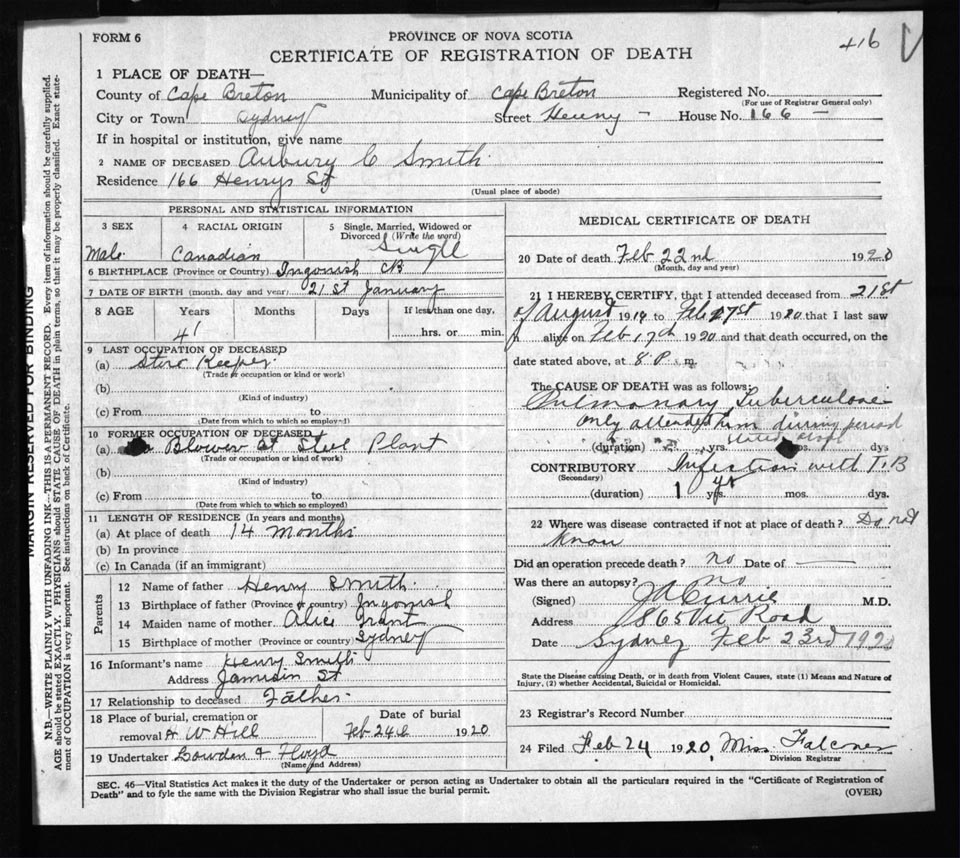 FORM 6
PROVINCE OF NOVA SCOTIA
416
CERTIFICATE OF REGISTRATION OF DEATH
1 PLACE OF DEATH—
County of Cape Breton Municipality of Cape Breton Registered No.
(For use of Registrar General only)
City or Town Sydney Street Henry — House No. 166 —
If in hospital or institution, give name
2 NAME OF DECEASED Aubury C Smith
Residence 166 Henrys St
(Usual place of abode)
MARGIN RESERVED FOR BINDING
N.B.—WRITE PLAINLY WITH UNFADING INK—THIS IS A PERMANENT RECORD. Every item of information should be carefully supplied.
AGE should be stated EXACTLY, PHYSICIANS should STATE CAUSE OF DEATH in plain terms, so that it may be properly classified. Exact state-
ment of OCCUPATION is very important. See instructions on back of Certificate.
PERSONAL AND STATISTICAL INFORMATION
3 SEX 4 RACIAL ORIGIN 5 Single, Married, Widowed or
Divorced (Write the word)
Male Canadian Single
6 BIRTHPLACE (Province or Country) Ingonish CB
7 DATE OF BIRTH (month, day and year) 21st January
8 AGE Years Months Days If less than one day,
41 hrs. or min.
9 LAST OCCUPATION OF DECEASED
(a) Store Keeper
(Trade or occupation or kind or work)
(b)
(Kind of industry)
(c) From to
(Date from which to which so employed)
10 FORMER OCCUPATION OF DECEASED
(a) Blower at Steel Plant
(Trade or occupation or kind of work)
(b)
(Kind of industry)
(c) From to
(Date from which to which so employed)
11 LENGTH OF RESIDENCE (In years and months)
(a) At place of death 14 Months
(b) In province
(c) In Canada (if an immigrant)
Parents
12 Name of father Henry Smith
13 Birthplace of father (Province or country) Ingonish
14 Maiden name of mother Alice Grant
15 Birthplace of mother (Province or country) Sydney
16 Informant's name Henry Smith
Address St
17 Relationship to deceased Father
18 Place of burial, cremation or Date of burial
removal W Hill Feb 24 1920
19 Undertaker Lowden & Floyd
(Name and Address)
MEDICAL CERTIFICATE OF DEATH
20 Date of death Feb 22nd 1920
(Month, day and year)
21 I HEREBY CERTIFY, that I attended deceased from 21st
of August 1919 to Feb 17st 1920 that I last saw
h alive on Feb 17th 1920 and that death occurred, on the
date stated above, at 8 P. m.
The CAUSE OF DEATH was as follows:
Pulmonary Tuberculosis
only attended him during period
stated above
(duration) yrs. mos. dys
CONTRIBUTORY Infection with T.B
(Secondary)
(duration) 1 yr yrs. mos. dys.
22 Where was disease contracted if not at place of death? Do not
know
Did an operation precede death? no Date of —
Was there an autopsy? no
(Signed) JA Currie M.D.
Address 865 Vic Road
Date Sydney Feb 23rd 1920
State the Disease causing Death, or in death from Violent Causes, state (1) Means and Nature of
Injury, (2) whether Accidental, Suicidal or Homicidal.
23 Registrar's Record Number
24 Filed Feb 24 1920 Miss Falconer
Division Registrar
SEC. 46—Vital Statistics Act makes it the duty of the Undertaker or person acting as Undertaker to obtain all the particulars required in the "Certificate of Registration of
Death" and to fyle the same with the Division Registrar who shall issue the burial permit.
(OVER)